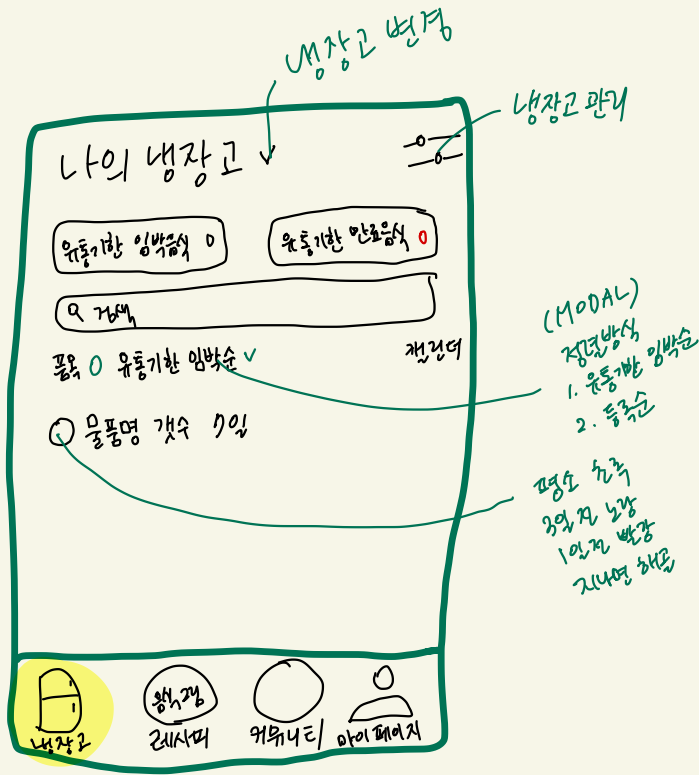 냉장고 변경
냉장고 관리
나의 냉장고
유통기한 임박음식 0
유통기한 만료음식 0
검색
품목 0 유통기한 임박순
캘린더
(MODAL)
정렬방식
1. 유통기한 임박순
2. 등록순
물품명 갯수 7일
평소 초록
3일전 노랑
1일전 빨강
지나면 해골
냉장고
음식그림
레시피
커뮤니티
마이페이지